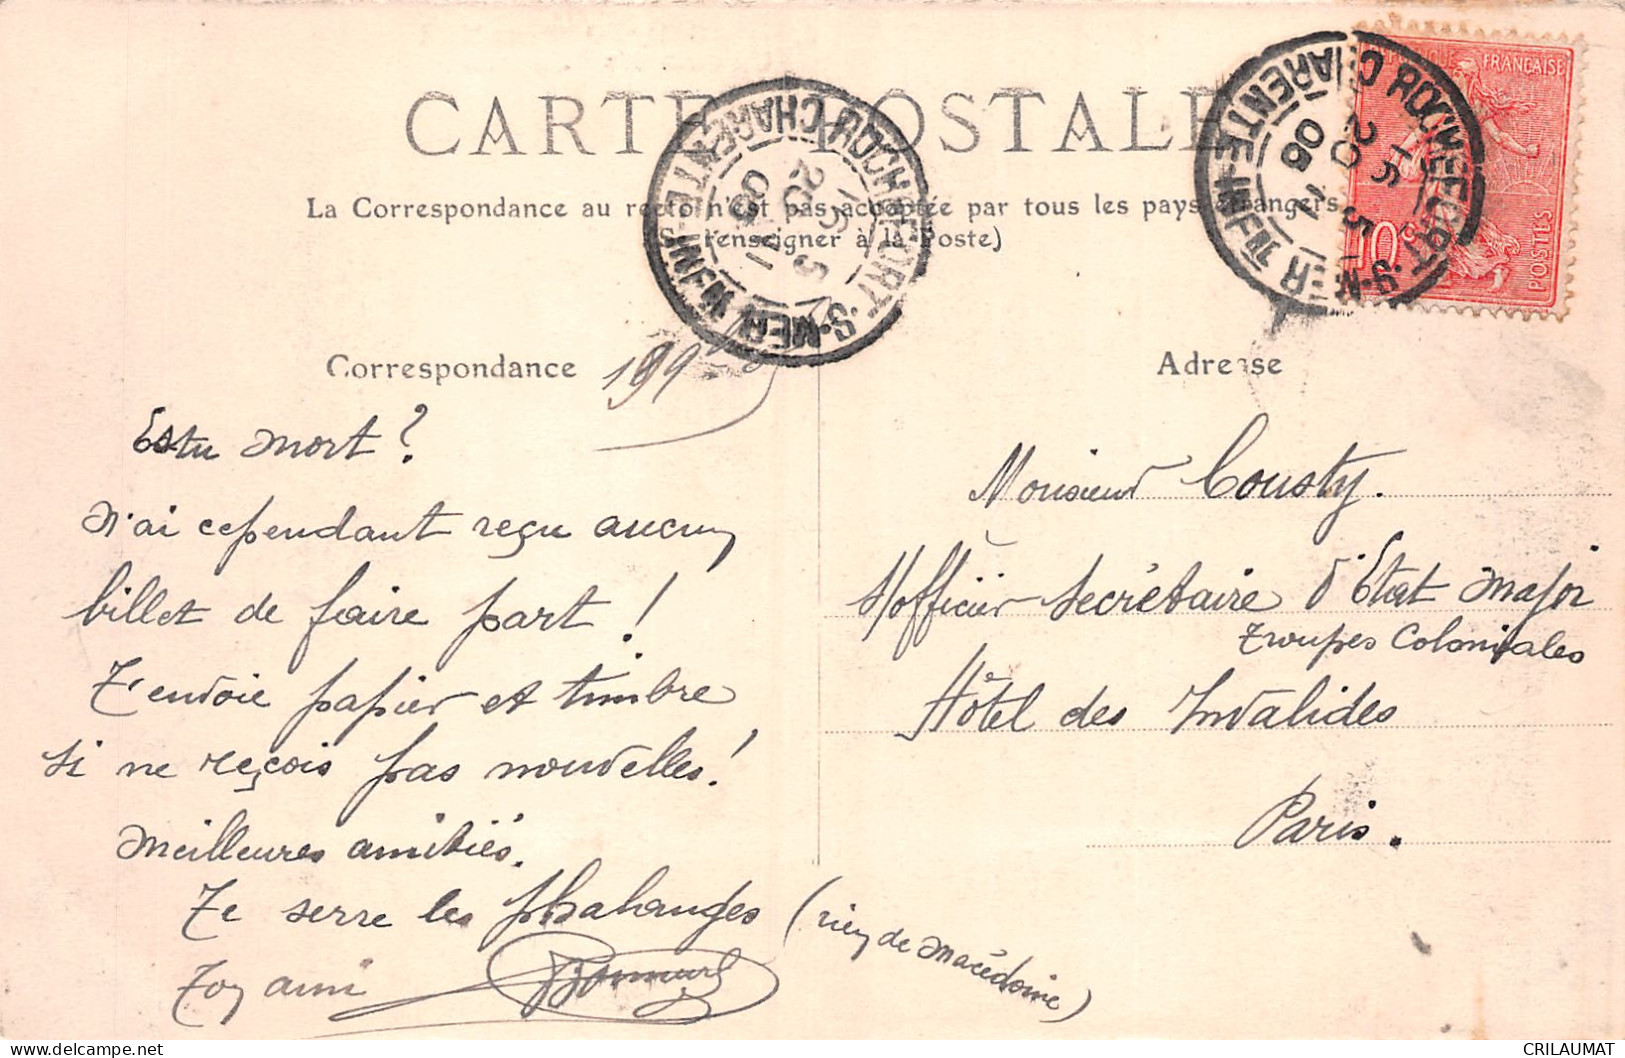 CARTE POSTALE
La Correspondance au recto n'est pas acceptée par tous les pays étrangers
(Se renseigner à la Poste)
ROCHEFORT-S-MER
CHARENTE-INFRE
16 5
20 11
05
ROCHEFORT-S-MER
CHARENTE-INFRE
16 5
20 11
05
RÉPUBLIQUE FRANÇAISE
10c
POSTES
Correspondance
199
Adresse
Es tu mort?
N'ai cependant reçu aucun
billet de faire part!
T'envoie papier et timbre
si ne reçois pas nouvelles!
Meilleures amitiés.
Te serre les phalanges (rien de Macédoine)
Toy ami
Monsieur Cousty.
S/officier Secrétaire d'État Major
Troupes Coloniales
Hôtel des Invalides
Paris.
CRILAUMAT